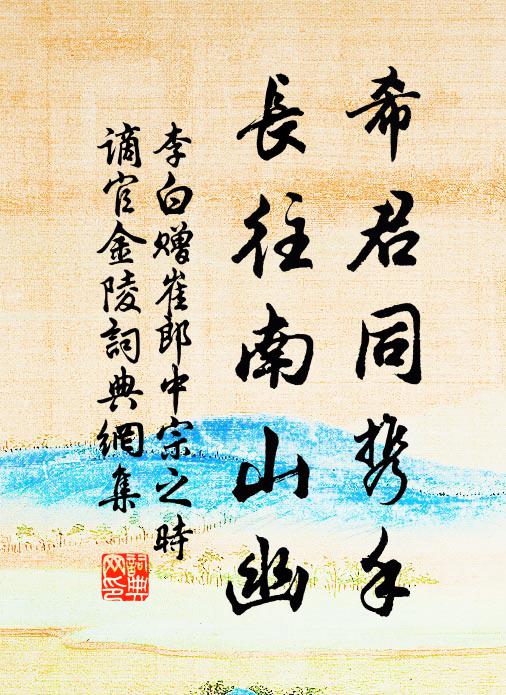 希君同携手
長往南山幽
李白赠崔郎中宗之時
谪官金陵詞典網集
詞典
网印